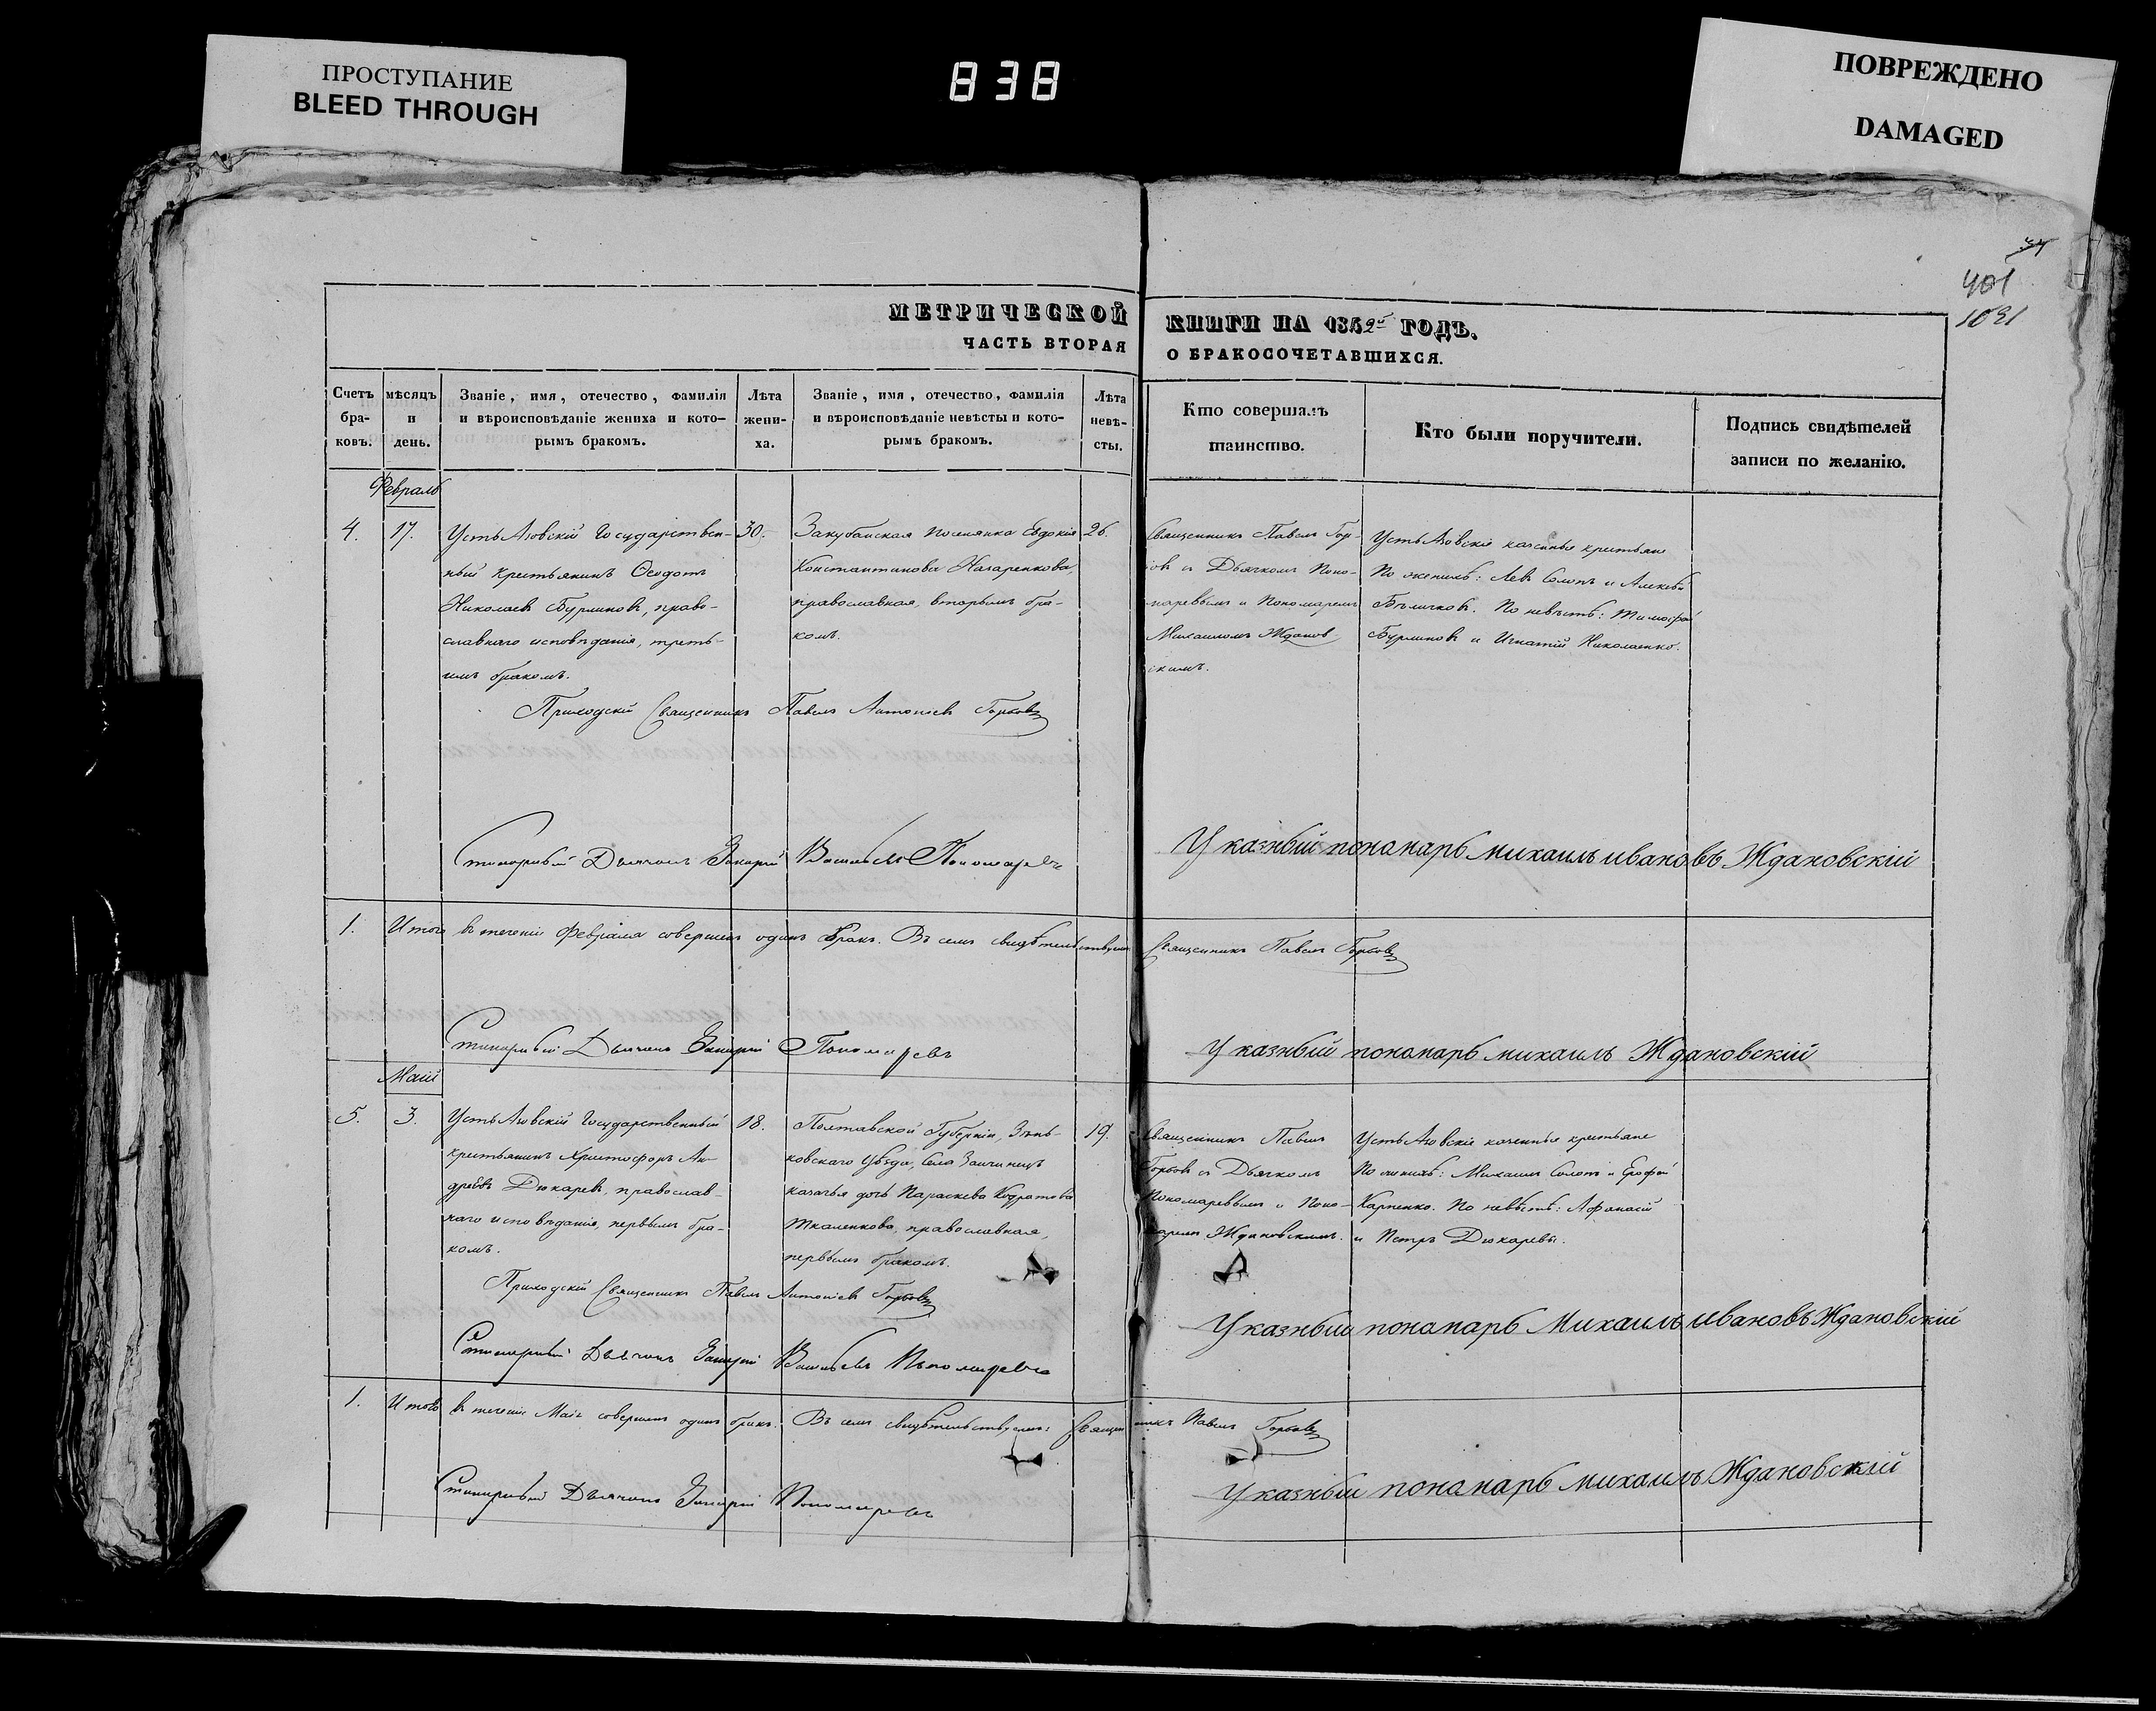 ПРОСТУПАНИЕ
BLEED THROUGH
838
ПОВРЕЖДЕНО
DAMAGED
401
1031
МЕТРИЧЕСКОЙ
ЧАСТЬ ВТОРАЯ
КНИГИ НА 1842й ГОДЪ.
О БРАКОСОЧЕТАВШИХСЯ.
Счетъ бра-ковъ.
мѣсяцъ и день.
Званіе, имя, отечество, фамилія
и вѣроисповѣданіе жениха и кото-
рымъ бракомъ.
Лѣта жени-ха.
Званіе, имя, отечество, фамилія
и вѣроисповѣданіе невѣсты и кото-
рымъ бракомъ.
Лѣта невѣ-сты.
Кто совершалъ
таинство.
Кто были поручители.
Подпись свидѣтелей
записи по желанію.
Февраль
4.
17.
Государствен-
ный крестьянинъ Ѳеодотъ
Николаевъ Бурликовъ, право-
славнаго исповѣданія, треть-
имъ бракомъ.
30.
Закубанская поселянка Евдокія
Константинова Назаренкова,
православная, вторымъ бра-
комъ.
26.
Священникъ Павелъ Гор-
овъ съ Дьячкомъ Поно-
маревымъ и Пономаремъ
Михаиломъ Жданов-
скимъ.
казенные крестьяне
По женихѣ: Левъ Солопъ и Алексѣй
Бѣличковъ. По невѣстѣ: Тимофей
Бурликовъ и Игнатій Николаенко.
Приходскій Священникъ Павелъ Антоніевъ Горбовъ
Стихарный Дьячокъ Захарій Васильевъ Пономаревъ
Указный понамарь михаилъ ивановъ Ждановскій
1.
Итого въ теченіи Февраля совершенъ одинъ бракъ. Въ семъ свидѣтельствуемъ Священникъ Павелъ Горбовъ
Стихарный Дьячокъ Захарій Пономаревъ
Указный понамарь михаилъ Ждановскій
Маій
5.
3.
Государственный
крестьянинъ Христофоръ Ан-
дреевъ Дюкаревъ, православ-
наго исповѣданія, первымъ бра-
комъ.
18.
Полтавской Губерніи, Зѣнь-
ковскаго Уѣзда, Села
казачья дочь Параскева Кодратова
Ткаленкова, православная,
первымъ бракомъ.
19.
Священникъ Павелъ
Горбовъ съ Дьячкомъ
Пономаревымъ и Поно-
маремъ Ждановскимъ.
казенные крестьяне
По женихѣ: Михаилъ Солопъ и Ерофей
Карпенко. По невѣстѣ: Афанасій
и Петръ Дюкаревы.
Приходскій Священникъ Павелъ Антоніевъ Горбовъ
Стихарный Дьячокъ Захарій Васильевъ Пономаревъ
Указный понамарь Михаилъ Ивановъ Ждановскій
1.
Итого въ теченіи Маія совершенъ одинъ бракъ. Въ семъ свидѣтельствуемъ: Священникъ Павелъ Горбовъ
Стихарный Дьячокъ Захарій Пономаревъ
Указный понамарь михаилъ Ждановскій